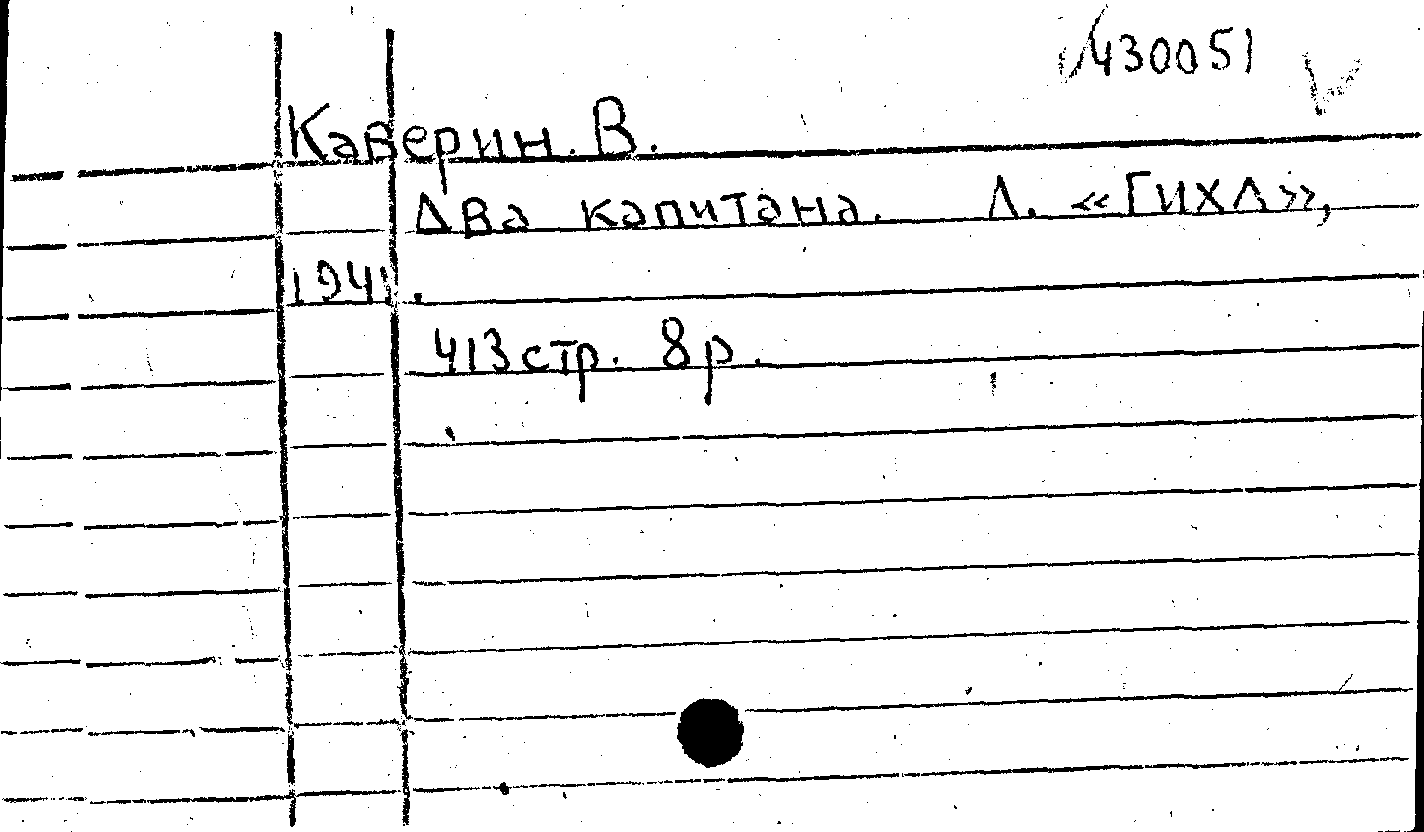 430051
Каверин. В.
Два капитана. Л. «ГИХЛ»,
1941.
413 стр. 8 р.